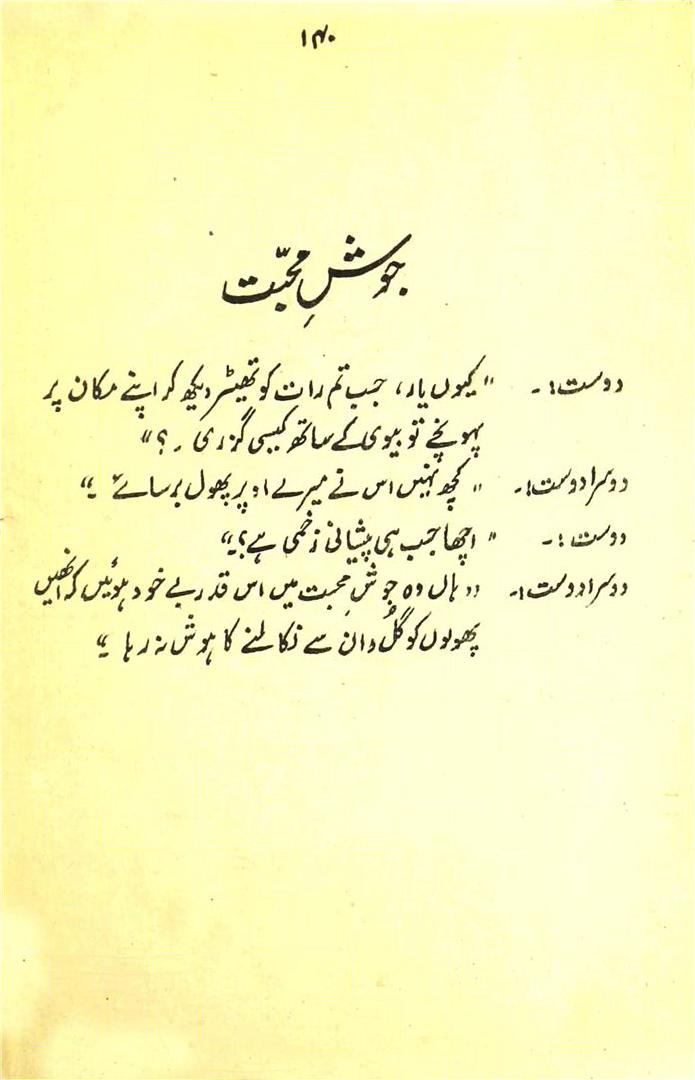 ۱۴۰
جوشِ محبّت
دوست:۔ "کیوں یار، جب تم رات کو تھیٹر دیکھ کر اپنے مکان پر
پہونچے تو بیوی کے ساتھ کیسی گزری ۔؟"
دوسرا دوست:۔ "کچھ نہیں اس نے میرے اوپر پھول برسائے ۔"
دوست:۔ "اچھا جب ہی پیشانی زخمی ہے؟۔"
دوسرا دوست:۔ "ہاں وہ جوشِ محبت میں اس قدر بے خود ہوئیں کہ انھیں
پھولوں کو گُل دان سے نکالنے کا ہوش نہ رہا ۔"